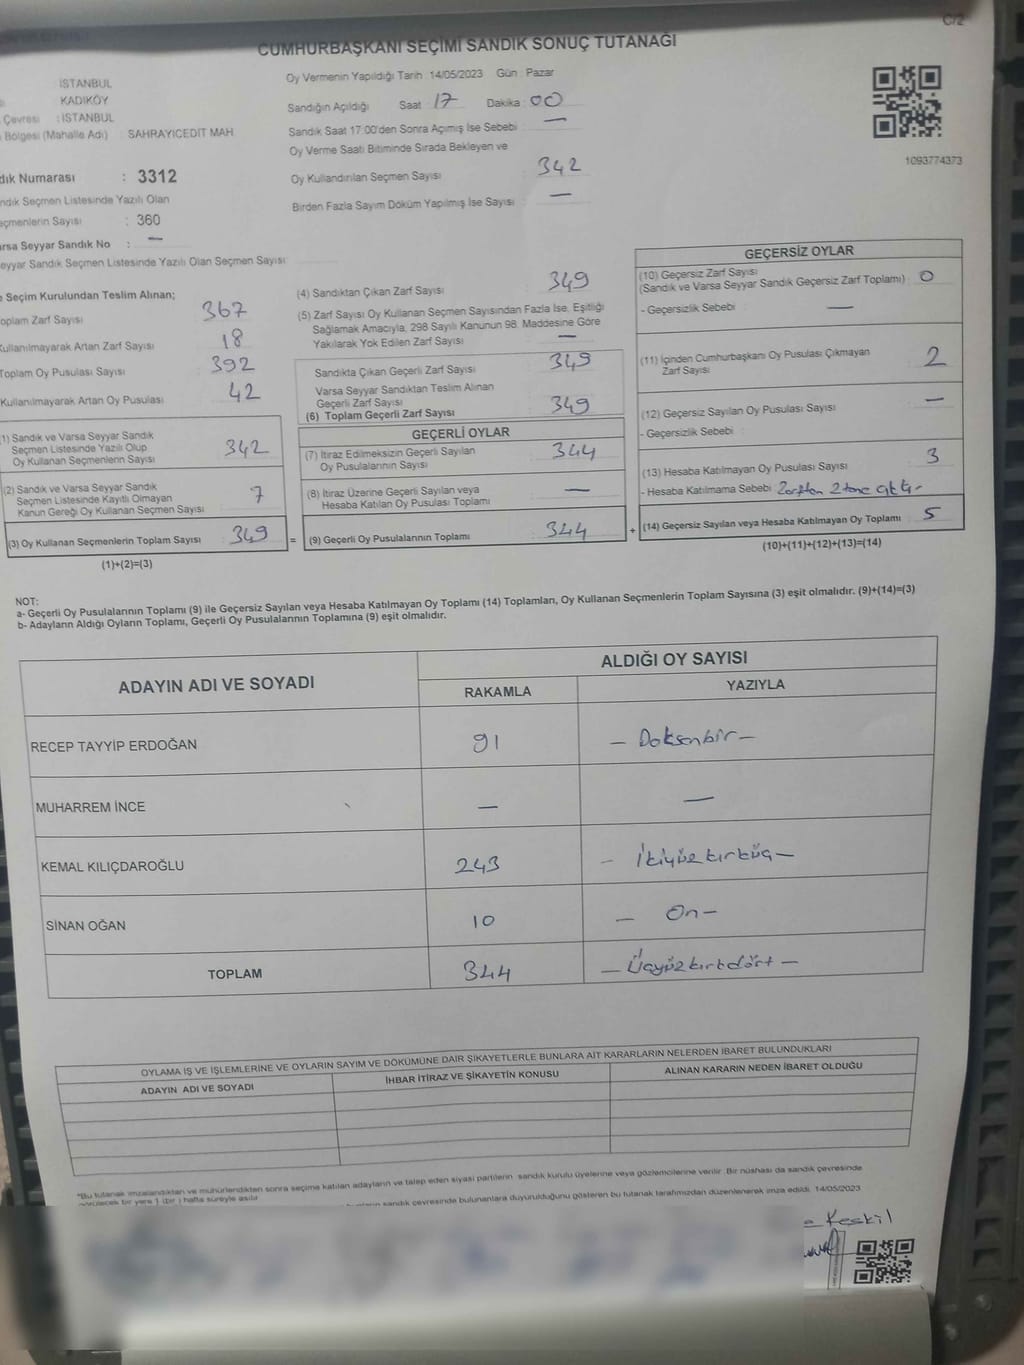 C/2
CUMHURBAŞKANI SEÇİMİ SANDIK SONUÇ TUTANAĞI
İSTANBUL
KADIKÖY
Çevresi : İSTANBUL
Bölgesi (Mahalle Adı) : SAHRAYICEDİT MAH.
Oy Vermenin Yapıldığı Tarih : 14/05/2023 Gün : Pazar
Sandığın Açıldığı Saat 17 Dakika : 00
Sandık Saat 17:00'den Sonra Açılmış İse Sebebi : —
Oy Verme Saati Bitiminde Sırada Bekleyen ve
Oy Kullandırılan Seçmen Sayısı : 342
Birden Fazla Sayım Döküm Yapılmış İse Sayısı : —
1093774373
dık Numarası : 3312
ndık Seçmen Listesinde Yazılı Olan
eçmenlerin Sayısı : 360
arsa Seyyar Sandık No : —
eyyar Sandık Seçmen Listesinde Yazılı Olan Seçmen Sayısı :
e Seçim Kurulundan Teslim Alınan;
oplam Zarf Sayısı 367
Kullanılmayarak Artan Zarf Sayısı 18
Toplam Oy Pusulası Sayısı 392
Kullanılmayarak Artan Oy Pusulası 42
1) Sandık ve Varsa Seyyar Sandık
Seçmen Listesinde Yazılı Olup
Oy Kullanan Seçmenlerin Sayısı 342
(2) Sandık ve Varsa Seyyar Sandık
Seçmen Listesinde Kayıtlı Olmayan
Kanun Gereği Oy Kullanan Seçmen Sayısı : 7
(3) Oy Kullanan Seçmenlerin Toplam Sayısı : 349 =
(1)+(2)=(3)
(4) Sandıktan Çıkan Zarf Sayısı : 349
(5) Zarf Sayısı Oy Kullanan Seçmen Sayısından Fazla İse, Eşitliği
Sağlamak Amacıyla, 298 Sayılı Kanunun 98. Maddesine Göre
Yakılarak Yok Edilen Zarf Sayısı : —
Sandıkta Çıkan Geçerli Zarf Sayısı : 349
Varsa Seyyar Sandıktan Teslim Alınan
Geçerli Zarf Sayısı
(6) Toplam Geçerli Zarf Sayısı : 349
GEÇERLİ OYLAR
(7) İtiraz Edilmeksizin Geçerli Sayılan
Oy Pusulalarının Sayısı : 344
(8) İtiraz Üzerine Geçerli Sayılan veya
Hesaba Katılan Oy Pusulası Toplamı : —
(9) Geçerli Oy Pusulalarının Toplamı : 344 +
GEÇERSİZ OYLAR
(10) Geçersiz Zarf Sayısı
(Sandık ve Varsa Seyyar Sandık Geçersiz Zarf Toplamı) : 0
- Geçersizlik Sebebi : —
(11) İçinden Cumhurbaşkanı Oy Pusulası Çıkmayan
Zarf Sayısı : 2
(12) Geçersiz Sayılan Oy Pusulası Sayısı : —
- Geçersizlik Sebebi :
(13) Hesaba Katılmayan Oy Pusulası Sayısı : 3
- Hesaba Katılmama Sebebi : Zarftan 2 tane çıktı-
(14) Geçersiz Sayılan veya Hesaba Katılmayan Oy Toplamı : 5
(10)+(11)+(12)+(13)=(14)
NOT:
a- Geçerli Oy Pusulalarının Toplamı (9) ile Geçersiz Sayılan veya Hesaba Katılmayan Oy Toplamı (14) Toplamları, Oy Kullanan Seçmenlerin Toplam Sayısına (3) eşit olmalıdır. (9)+(14)=(3)
b- Adayların Aldığı Oyların Toplamı, Geçerli Oy Pusulalarının Toplamına (9) eşit olmalıdır.
ADAYIN ADI VE SOYADI
ALDIĞI OY SAYISI
RAKAMLA YAZIYLA
RECEP TAYYİP ERDOĞAN 91 — Doksanbir —
MUHARREM İNCE — —
KEMAL KILIÇDAROĞLU 243 — İkiyüzkırküç —
SİNAN OĞAN 10 — On —
TOPLAM 344 — Üçyüzkırkdört —
OYLAMA İŞ VE İŞLEMLERİNE VE OYLARIN SAYIM VE DÖKÜMÜNE DAİR ŞİKAYETLERLE BUNLARA AİT KARARLARIN NELERDEN İBARET BULUNDUKLARI
ADAYIN ADI VE SOYADI İHBAR İTİRAZ VE ŞİKAYETİN KONUSU ALINAN KARARIN NEDEN İBARET OLDUĞU
*Bu tutanak imzalandıktan ve mühürlendikten sonra seçime katılan adayların ve talep eden siyasi partilerin sandık kurulu üyelerine veya gözlemcilerine verilir. Bir nüshası da sandık çevresinde
görülecek bir yere 1 (bir) hafta süreyle asılır
sandık çevresinde bulunanlara duyurulduğunu gösteren bu tutanak tarafımızdan düzenlenerek imza edildi. 14/05/2023
Keskil